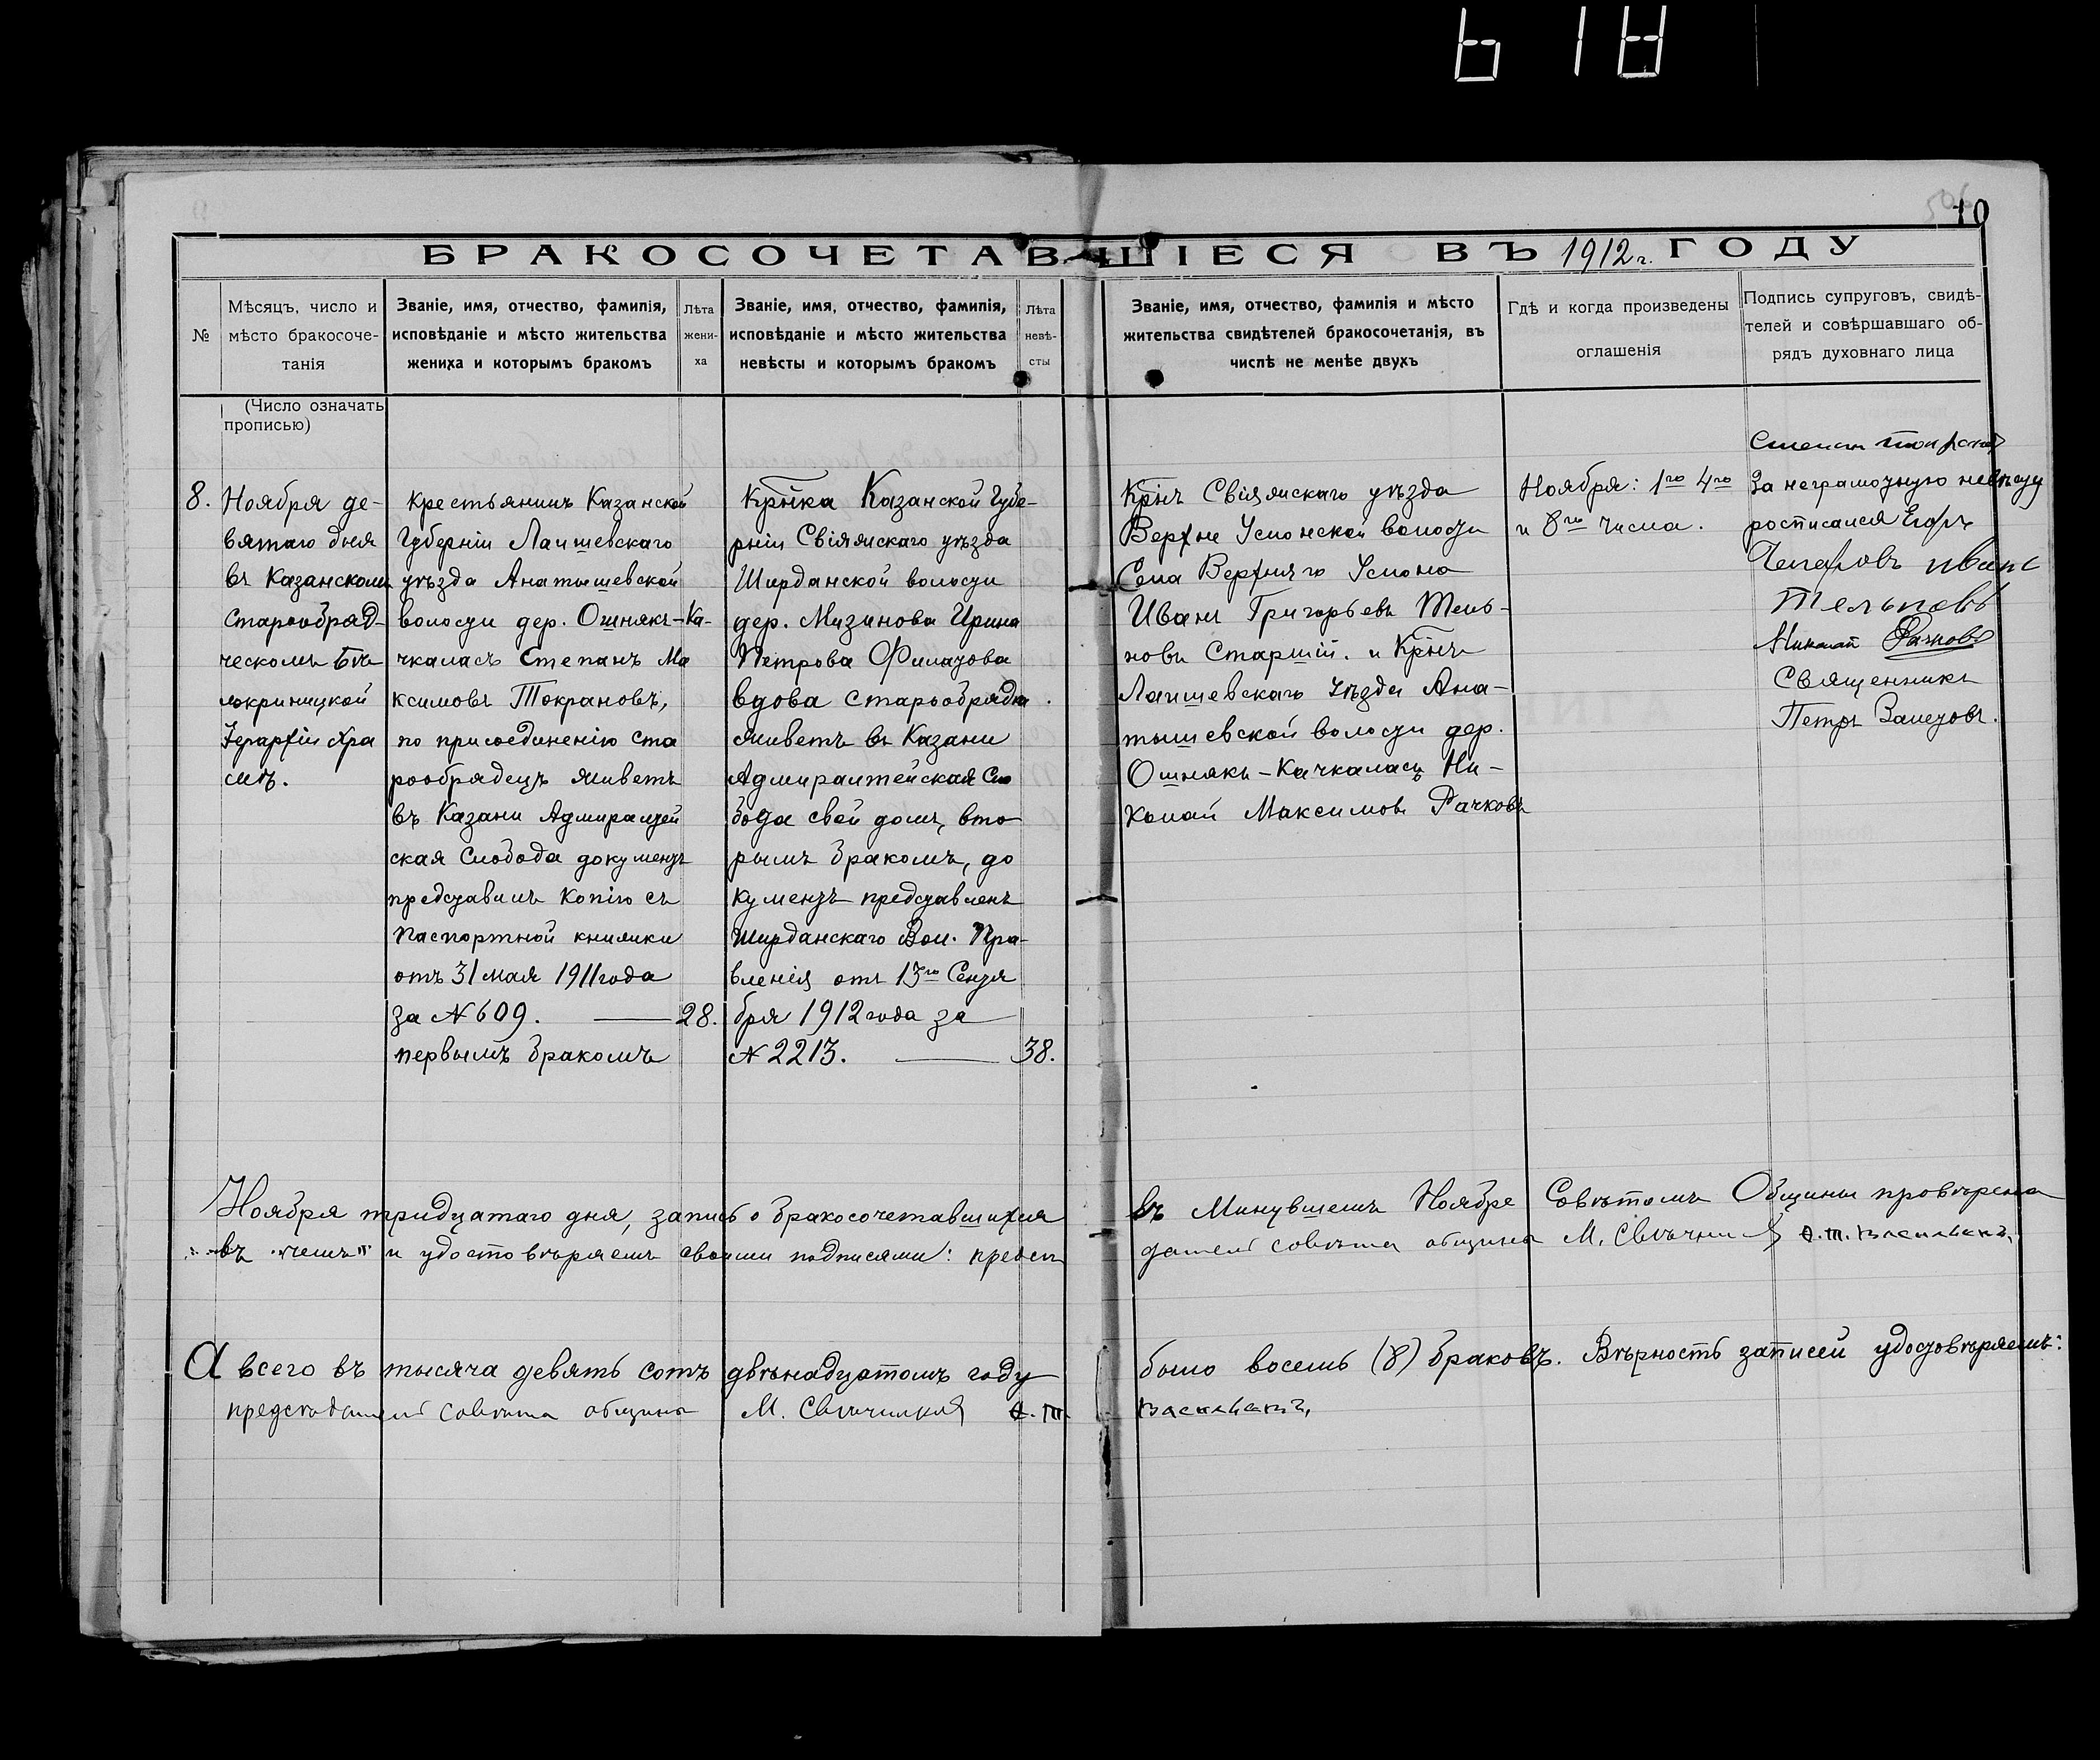 10
БРАКОСОЧЕТАВШІЕСЯ ВЪ 1912 г. ГОДУ
№
Мѣсяцъ, число и
мѣсто бракосоче-
танія
Званіе, имя, отчество, фамилія,
исповѣданіе и мѣсто жительства
жениха и которымъ бракомъ
Лѣта
жени-
ха
Званіе, имя, отчество, фамилія,
исповѣданіе и мѣсто жительства
невѣсты и которымъ бракомъ
Лѣта
невѣ-
сты
Званіе, имя, отчество, фамилія и мѣсто
жительства свидѣтелей бракосочетанія, въ
числѣ не менѣе двухъ
Гдѣ и когда произведены
оглашенія
Подпись супруговъ, свидѣ-
телей и совѣршавшаго об-
рядъ духовнаго лица
(Число означать
прописью)
8.
Ноября де-
вятаго дня
въ Казанскомъ
Старообряд-
ческомъ Бѣ
локриницкой
Іерархіи хра
мѣ.
Крестьянинъ Казанской
Губерніи Лаишевскаго
уѣзда Анатышевской
волости дер. Ошнякъ-Ка-
чкаласъ Степанъ Ма
ксимовъ Токрановъ,
по присоединенію ста
рообрядецъ живетъ
въ Казани Адмиралтей
ская Слобода документъ
представилъ копію съ
паспортной книжки
отъ 31 мая 1911 года
за № 609. — 28.
первымъ бракомъ
Крӥнка Казанской Губе-
рніи Свіяжскаго уѣзда
Ширданской волости
дер. Мизинова Ирина
Петрова Филатова
вдова старообрядка.
живетъ въ Казани
Адмиралтейская Сло
бода свой домъ, вто
рымъ бракомъ, до
кументъ представленъ
Ширданскаго Вол. Пра-
вленія отъ 13го Сентя
бря 1912 года за
№ 2213. — 38.
Крӥнъ Свіяжскаго уѣзда
Верхне Услонской волости
Села Верхняго Услона
Иванъ Григорьевъ Тель-
новъ Старшій. и Крӥнъ
Лаишевскаго Уѣзда Ана-
тышевской волости дер.
Ошнякъ-Качкаласъ Ни-
колай Максимовъ Рачковъ
Ноября: 1го 4го
и 8го числа.
Степан
За неграмотную невесту
росписался Егоръ
иванъ
Тельновъ
Николай Рачковъ
Священникъ
Петръ Залетовъ.
Ноября тридцатаго дня, запись о бракосочетавшихся въ Минувшемъ Ноябре Совѣтомъ Общины провѣрена
въ чемъ и удостовѣряемъ своими подписями: предсѣ дателѣ совѣта общины М. Свѣчник
А всего въ тысяча девять сотъ двѣнадцатомъ году было восемь (8) браковъ. Вѣрность записей удостовѣряемъ:
председателѣ совѣта общины М. Свѣчник